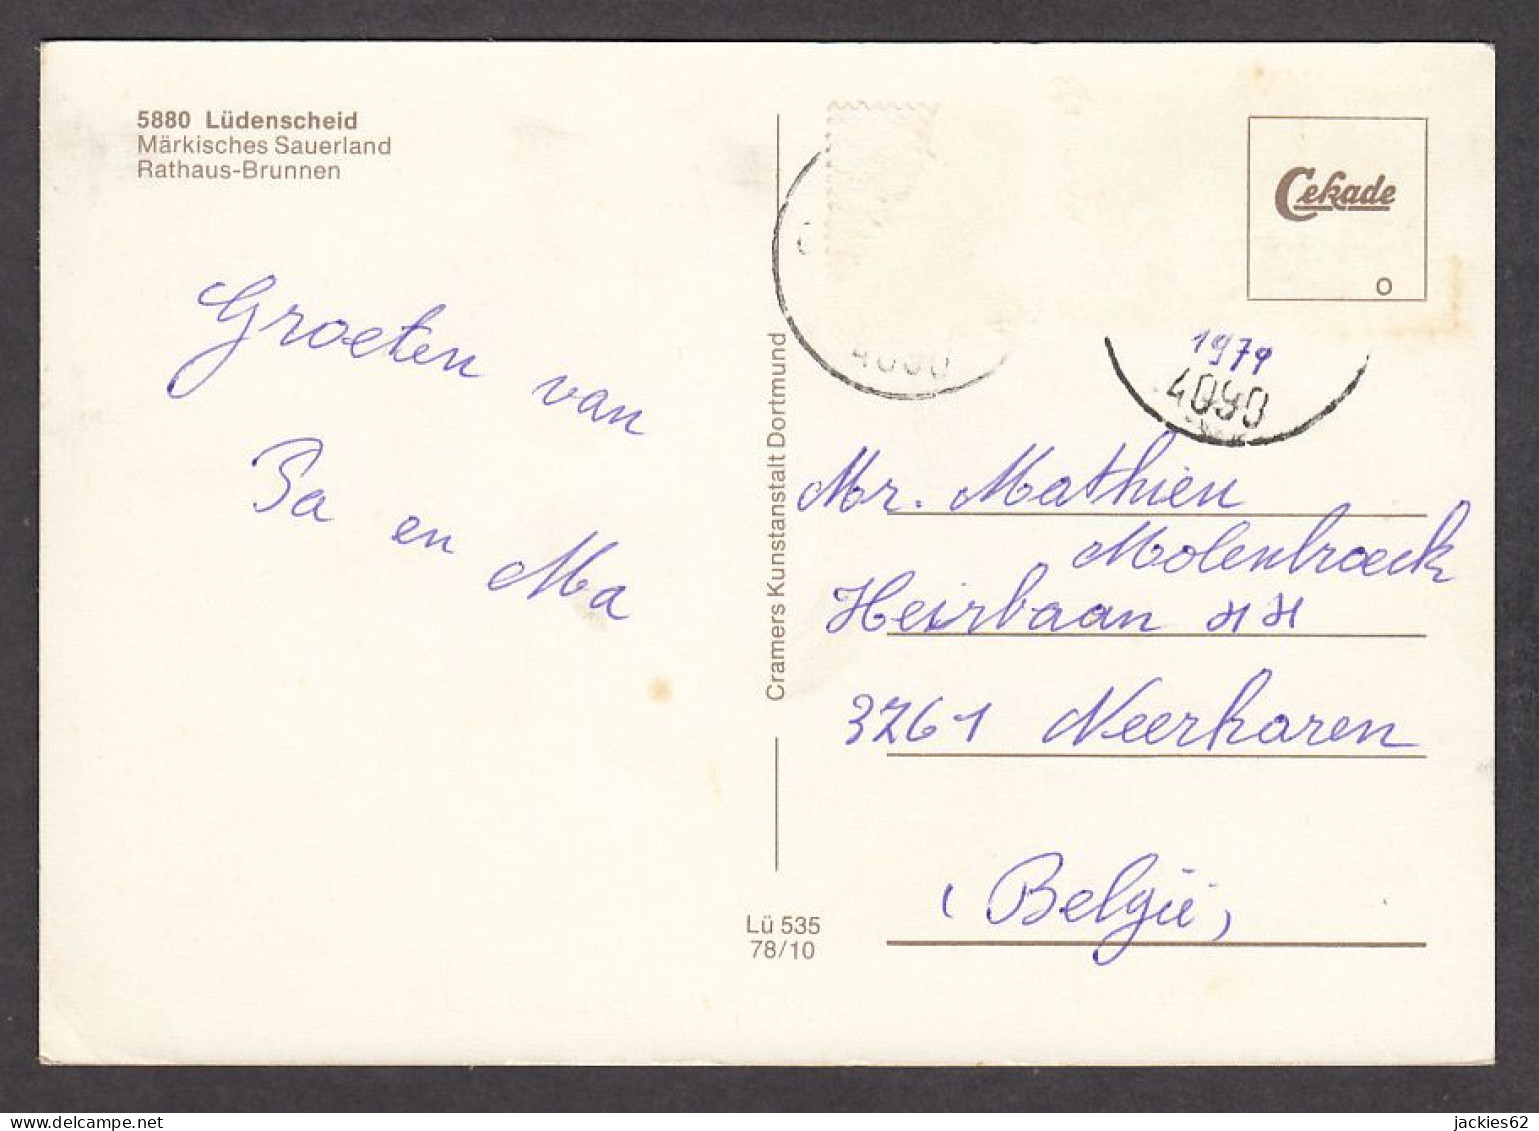 5880 Lüdenscheid
Märkisches Sauerland
Rathaus-Brunnen
Groeten van
Pa en Ma
Cramers Kunstanstalt Dortmund
Lü 535
78/10
Cekade
O
4090
1979
4090
Mr. Mathieu
Molenbroeck
Heirbaan
3261 Neerharen
(België)
delcampe.net
jackies62